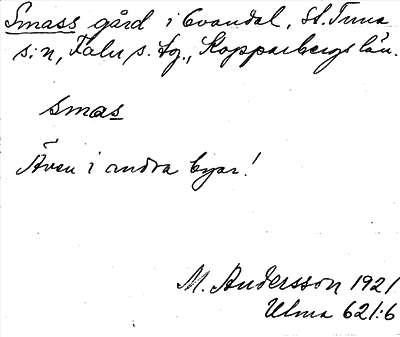 Smass gård i Ovandal, St. Tuna
s:n, Falu s. tg., Kopparbergs län.
smas
Även i andra byar!
M. Andersson 1921
Ulma 621:6